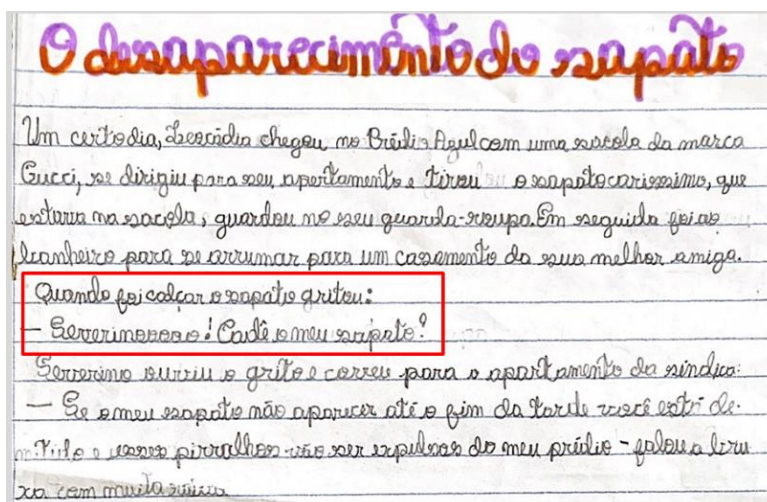 O desaparecimento do sapato
Um certo dia, Leocádia chegou no Prédio Azul com uma sacola da marca
Gucci, se dirigiu para seu apartamento e tirou o sapato caríssimo, que
estava na sacola, guardou no seu guarda-roupa. Em seguida foi ao
banheiro para se arrumar para um casamento da sua melhor amiga.
Quando foi calçar o sapato gritou:
— Severinooooo! Cadê o meu sapato?
Severino ouviu o grito e correu para o apartamento da síndica:
— Se o meu sapato não aparecer até o fim da tarde você está de-
mitido e esses pirralhos vão ser expulsos do meu prédio - falou a bru
xa com muita raiva.